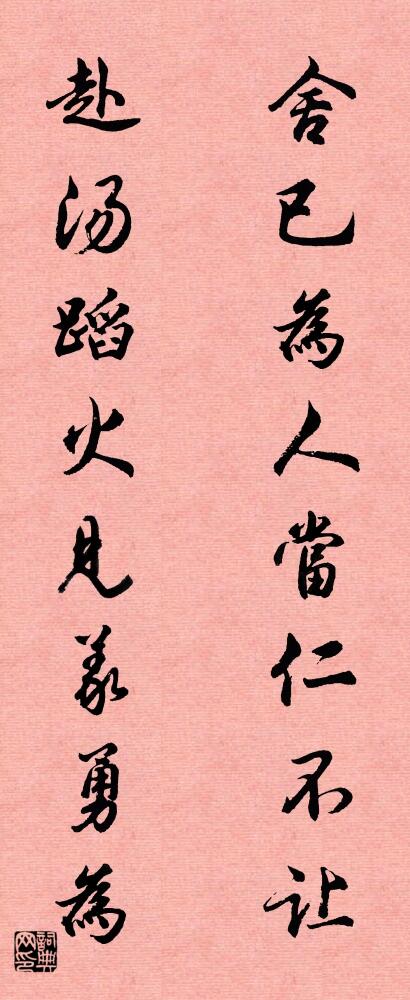 舍己為人當仁不让
赴汤蹈火見義勇為
詞典网印